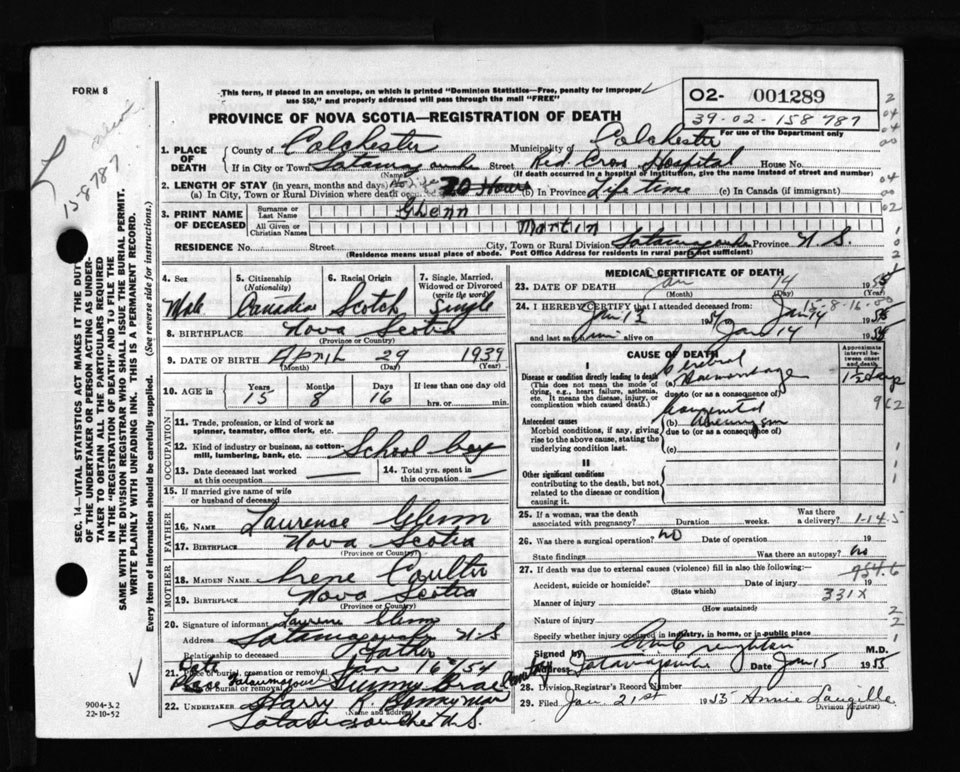 FORM 8
This form, if placed in an envelope, on which is printed "Dominion Statistics—Free, penalty for improper
use $50," and properly addressed will pass through the mail "FREE"
O2- 001289
39-02-158787
For use of the Department only
PROVINCE OF NOVA SCOTIA—REGISTRATION OF DEATH
158787
1. PLACE OF DEATH
County of Colchester Municipality of Colchester
If in City or Town Tatamagouche Street Red Cross Hospital House No.
(Name) (If death occurred in a hospital or institution, give the name instead of street and number)
2. LENGTH OF STAY (in years, months and days)
(a) In City, Town or Rural Division where death occurred 20 Hours (b) In Province Lifetime (c) In Canada (if immigrant)
3. PRINT NAME OF DECEASED
Surname or Last Name Glenn
All Given or Christian Names Martin
RESIDENCE No. Street City, Town or Rural Division Tatamagouche Province N.S.
(Residence means usual place of abode. Post Office Address for residents in rural parts not sufficient)
4. Sex
Male
5. Citizenship (Nationality)
Canadian
6. Racial Origin
Scotch
7. Single, Married, Widowed or Divorced (write the word)
Single
8. BIRTHPLACE Nova Scotia
(Province or Country)
9. DATE OF BIRTH April 29 1939
(Month) (Day) (Year)
10. AGE in Years Months Days If less than one day old
15 8 16 hrs. or min.
OCCUPATION
11. Trade, profession, or kind of work as
spinner, teamster, office clerk, etc.
12. Kind of industry or business, as cotton-
mill, lumbering, bank, etc. School boy
13. Date deceased last worked
at this occupation
14. Total yrs. spent in
this occupation
15. If married give name of wife
or husband of deceased
FATHER
16. NAME Laurense Glenn
17. BIRTHPLACE Nova Scotia
(Province or Country)
MOTHER
18. MAIDEN NAME Irene Coulter
19. BIRTHPLACE Nova Scotia
(Province or Country)
20. Signature of informant Laurense Glenn
Address Tatamagouche N-S
Relationship to deceased Father
21. Date of burial, cremation or removal Jan 16-/54
Place of burial or removal Tatamagouche Cemetery
22. UNDERTAKER Harry K. Bonnyman
(Name and address)
Tatamagouche N.S.
9004-3.2
22-10-52
SEC. 14—VITAL STATISTICS ACT MAKES IT THE DUTY
OF THE UNDERTAKER OR PERSON ACTING AS UNDER-
TAKER TO OBTAIN ALL THE PARTICULARS REQUIRED
IN THE "REGISTRATION OF DEATH" AND TO FILE THE
SAME WITH THE DIVISION REGISTRAR WHO SHALL ISSUE THE BURIAL PERMIT.
WRITE PLAINLY WITH UNFADING INK. THIS IS A PERMANENT RECORD.
Every item of information should be carefully supplied. (See reverse side for instructions.)
MEDICAL CERTIFICATE OF DEATH
23. DATE OF DEATH Jan 14 1955
(Month) (Day) (Year)
15-8-16.00
24. I HEREBY CERTIFY that I attended deceased from:
Jan 13 1954 Jan 14 1955
and last saw him alive on Jan 14 1955
CAUSE OF DEATH
Approximate interval between onset and death
I
Disease or condition directly leading to death
(This does not mean the mode of
dying, e.g., heart failure, asthenia,
etc. It means the disease, injury, or
complication which caused death.)
(a) Cerebral Haemorrhage
due to (or as a consequence of)
Antecedent causes
Morbid conditions, if any, giving
rise to the above cause, stating the
underlying condition last.
(b) Congenital Aneurysm
due to (or as a consequence of)
(c)
962
II
Other significant conditions
contributing to the death, but not
related to the disease or condition
causing it.
25. If a woman, was the death
associated with pregnancy? Duration weeks. Was there a delivery?
1-14-5
26. Was there a surgical operation? no Date of operation 19
State findings Was there an autopsy? no
27. If death was due to external causes (violence) fill in also the following:—
954.6
Accident, suicide or homicide? Date of injury 19
(State which)
331X
Manner of injury
(How sustained)
Nature of injury
Specify whether injury occurred in industry, in home, or in public place
Signed by Creighton M.D.
Address Tatamagouche Date Jan 15 1955
28. Division Registrar's Record Number
29. Filed Jan. 21st 1955 Annie Langille
(Division Registrar)